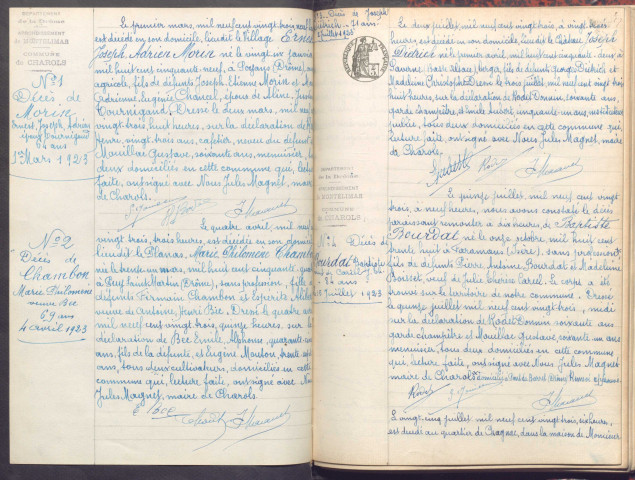 DEPARTEMENT
de la Drôme
ARRONDISSEMENT
de MONTÉLIMAR
COMMUNE
de CHAROLS
N°1
Décès de
Morin
Ernest, Joseph, Adrien
époux Tournigand
64 ans
1er Mars 1923
Le premier mars, mil neuf cent vingt trois, neuf
est décédé en son domicile, lieudit le Village Ernest
Joseph, Adrien Morin né le vingt six janvier
mil huit cent cinquante neuf, à Poyans, Drôme,
agricole, fils de défunts Joseph, Etienne Morin et
Adrienne, Eugénie Chancel, époux de Aline,
Tournigand. Dressé le deux mars, mil neuf
vingt trois, huit heures, sur la déclaration de
henri, vingt trois ans, cafetier, neveu du défunt
Mouillac Gustave, soixante ans, menuisier,
deux domiciliés en cette commune qui, lecture
faite, ont signé avec Nous Jules Magnet, maire
de Charols.
N°2
Décès de
Chambon
Marie Philomène
veuve Bée
69 ans
4 avril 1923
Le quatre avril, mil neuf
vingt trois, trois heures, est décédée en son domicile
lieudit le Planas, Marie Philomène Chambon
née le trente un mars, mil huit cent cinquante
à Puy Saint Martin (Drôme), sans profession, fille
défunts Firmain Chambon et
veuve de Antoine, Henri Bée. Dressé le quatre
mil neuf cent vingt trois, quinze heures, sur
déclaration de Bée Emile, Alphonse, quarante
ans, fils de la défunte, et Eugène Moulon, trente
ans, tous deux cultivateurs, domiciliés en cette
commune qui, lecture faite, ont signé avec
Jules Magnet, maire de Charols.
E Bée
Décès de Joseph
71 ans
2 juillet 1923
Le deux juillet, mil neuf cent vingt trois, à vingt trois
heures, est décédé en son domicile lieudit le Château Joseph
Dietrich né le premier avril, mil huit cent cinquante deux à
berger, fils de défunts Georges Dietrich et
Madeleine Christophe. Dressé le trois juillet, mil neuf cent vingt trois
huit heures, sur la déclaration de Rodet Bonnin, soixante ans,
garde champêtre et Emile Imbert, cinquante un ans, instituteur
public, tous deux domiciliés en cette commune qui,
lecture faite, ont signé avec Nous Jules Magnet, maire
de Charols.
DEPARTEMENT
de la Drôme
ARRONDISSEMENT
de MONTÉLIMAR
COMMUNE
de CHAROLS
N°4 Décès de
Bourdat Baptiste
15 juillet 1923
Le quinze juillet, mil neuf cent vingt
trois, à neuf heures, nous avons constaté le décès
paraissant remonter à six heures de Baptiste
Bourdat né le onze octobre, mil huit cent
trente huit à Varamans (Isère), sans profession,
fils de défunts Pierre, Antoine Bourdat et Madeleine
Boisset, veuf de Julie Césarée Carcel. Le corps a été
trouvé sur le territoire de notre commune. Dressé
le quinze juillet, mil neuf cent vingt trois, midi
sur la déclaration de Rodet Bonnin soixante ans
garde champêtre et Mouillac Gustave, soixante un ans
menuisier, tous deux domiciliés en cette commune
qui, lecture faite, ont signé avec Nous Jules Magnet
maire de Charols
Le vingt cinq juillet, mil neuf cent vingt trois, six heures,
est décédé au quartier de dans la maison de Monsieur